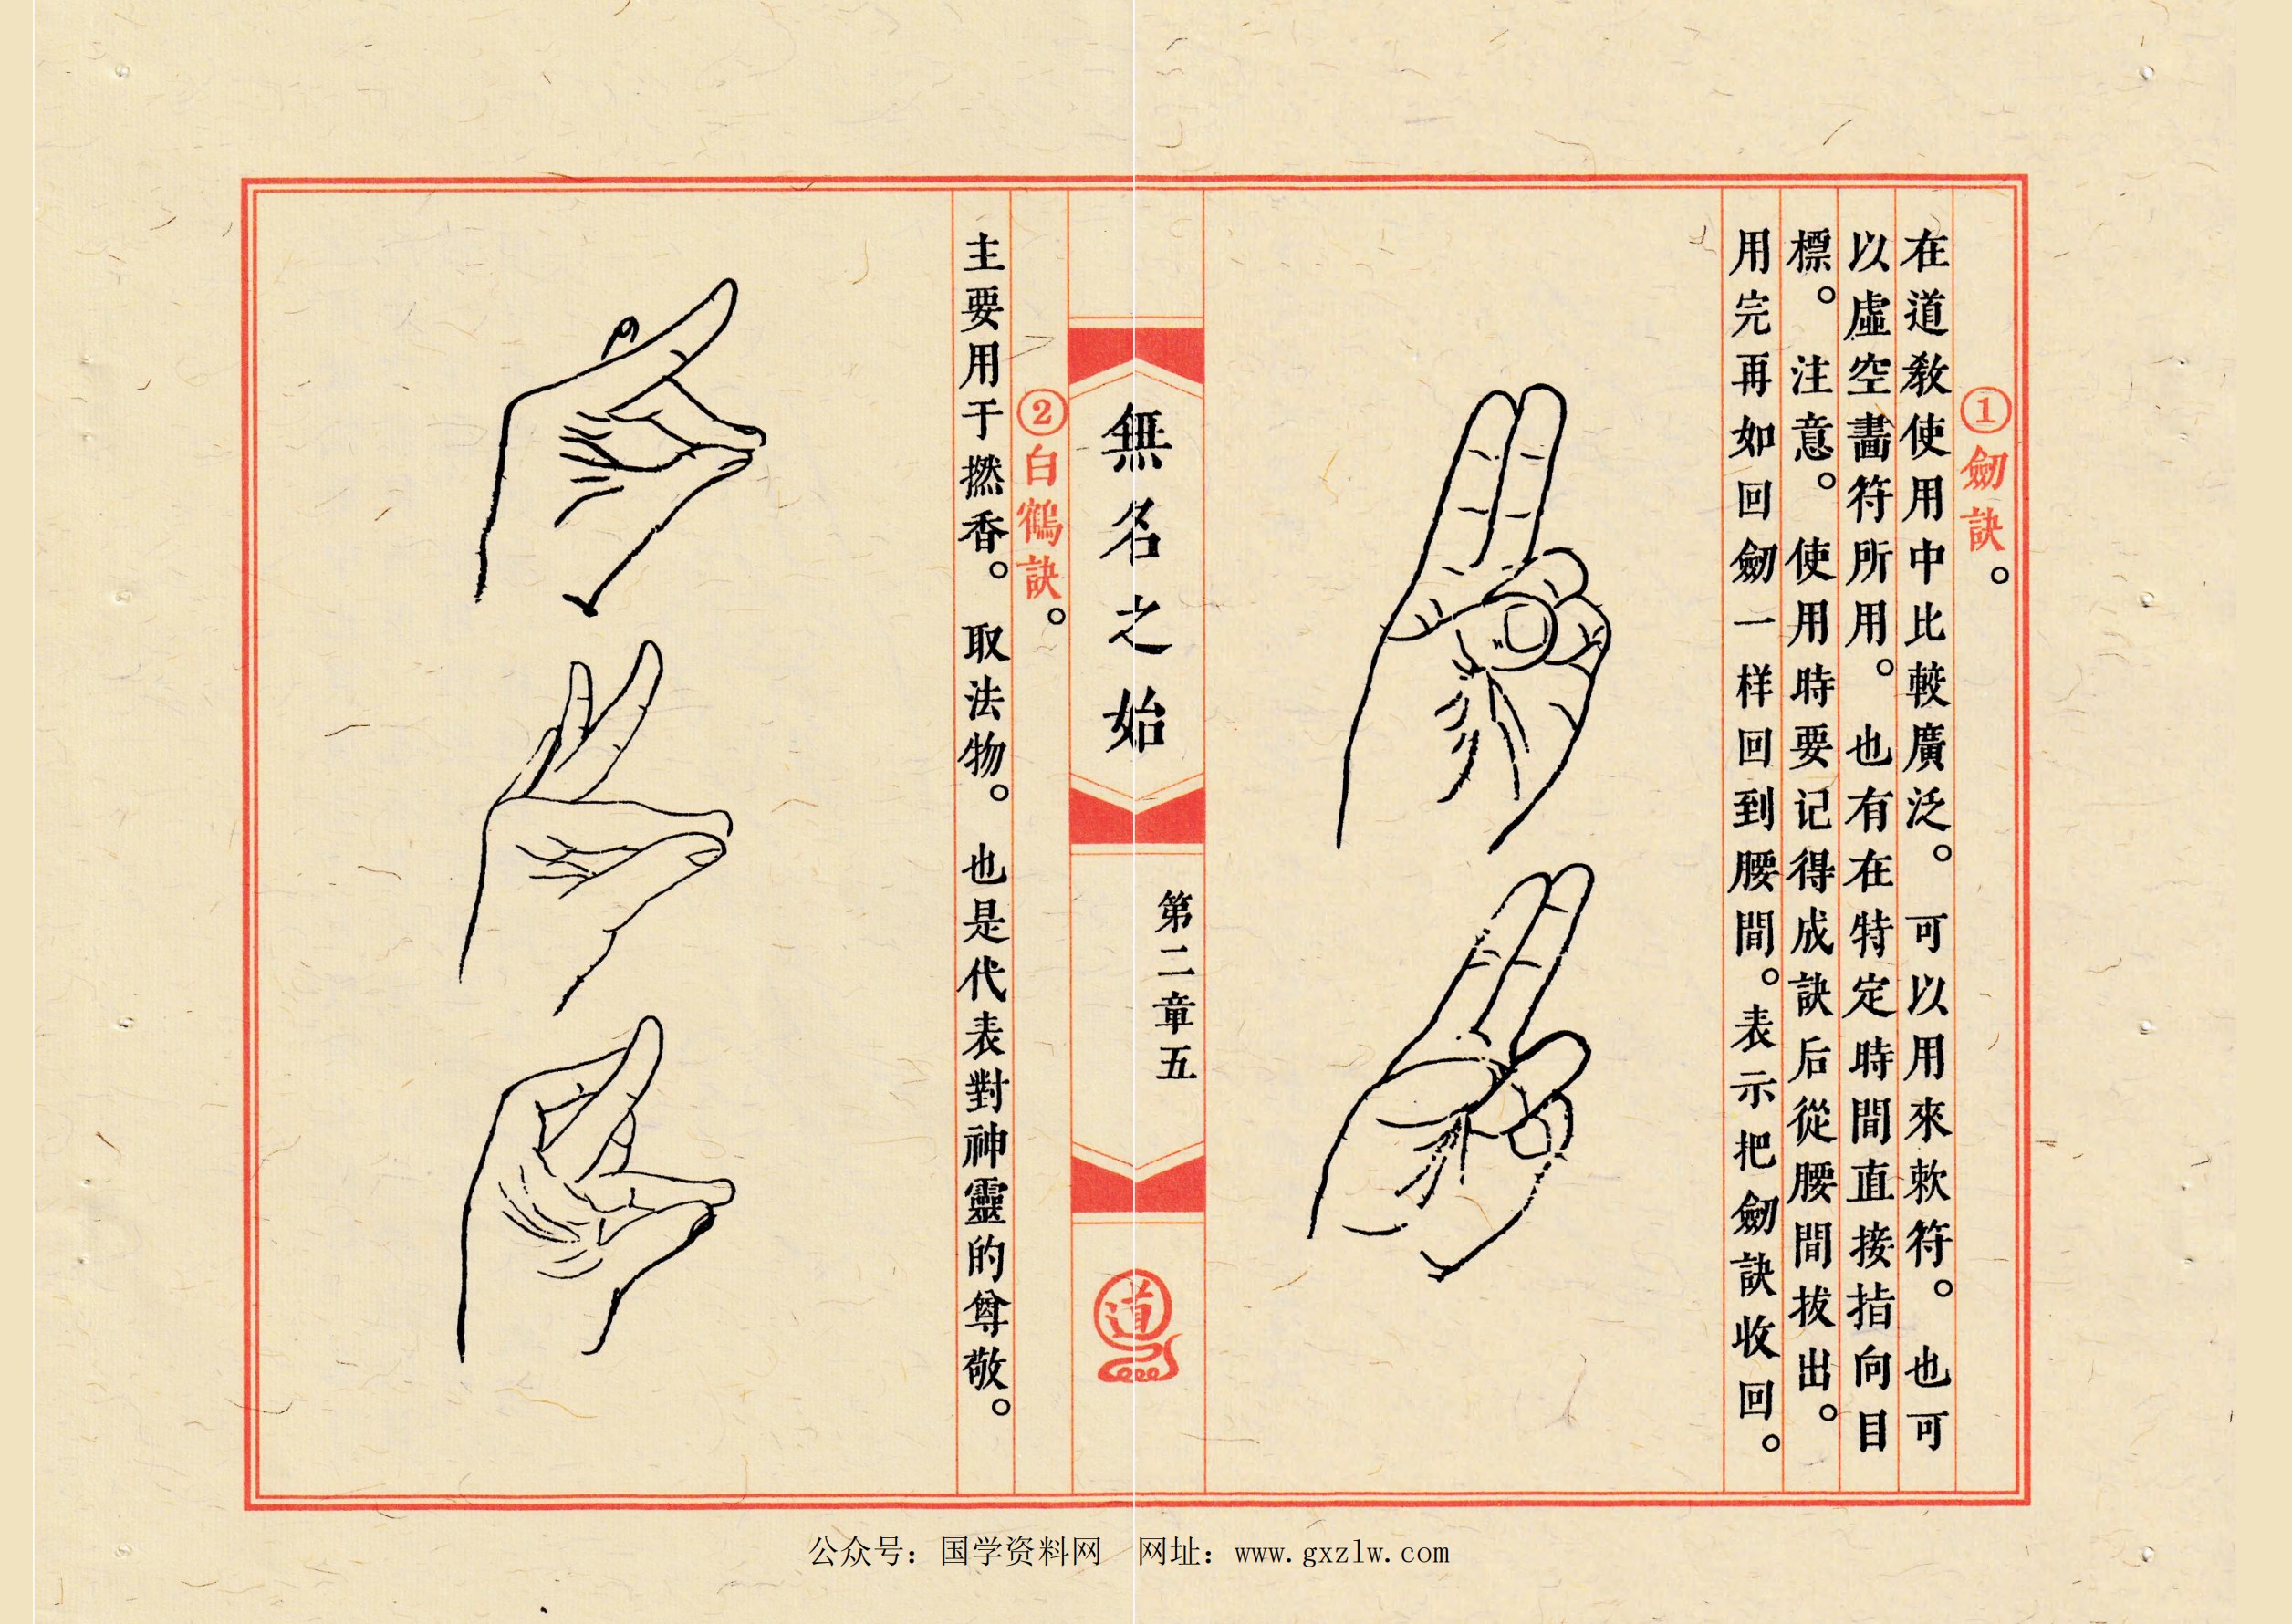 ①劍訣。
在道教使用中比較廣泛。可以用來敕符。也可
以虛空畵符所用。也有在特定時間直接指向目
標。注意。使用時要记得成訣后從腰間拔出。
用完再如回劍一样回到腰間。表示把劍訣收回。
無名之始
第二章五
道
②白鶴訣。
主要用于撚香。取法物。也是代表對神靈的尊敬。
公众号：国学资料网 网址：www.gxzlw.com